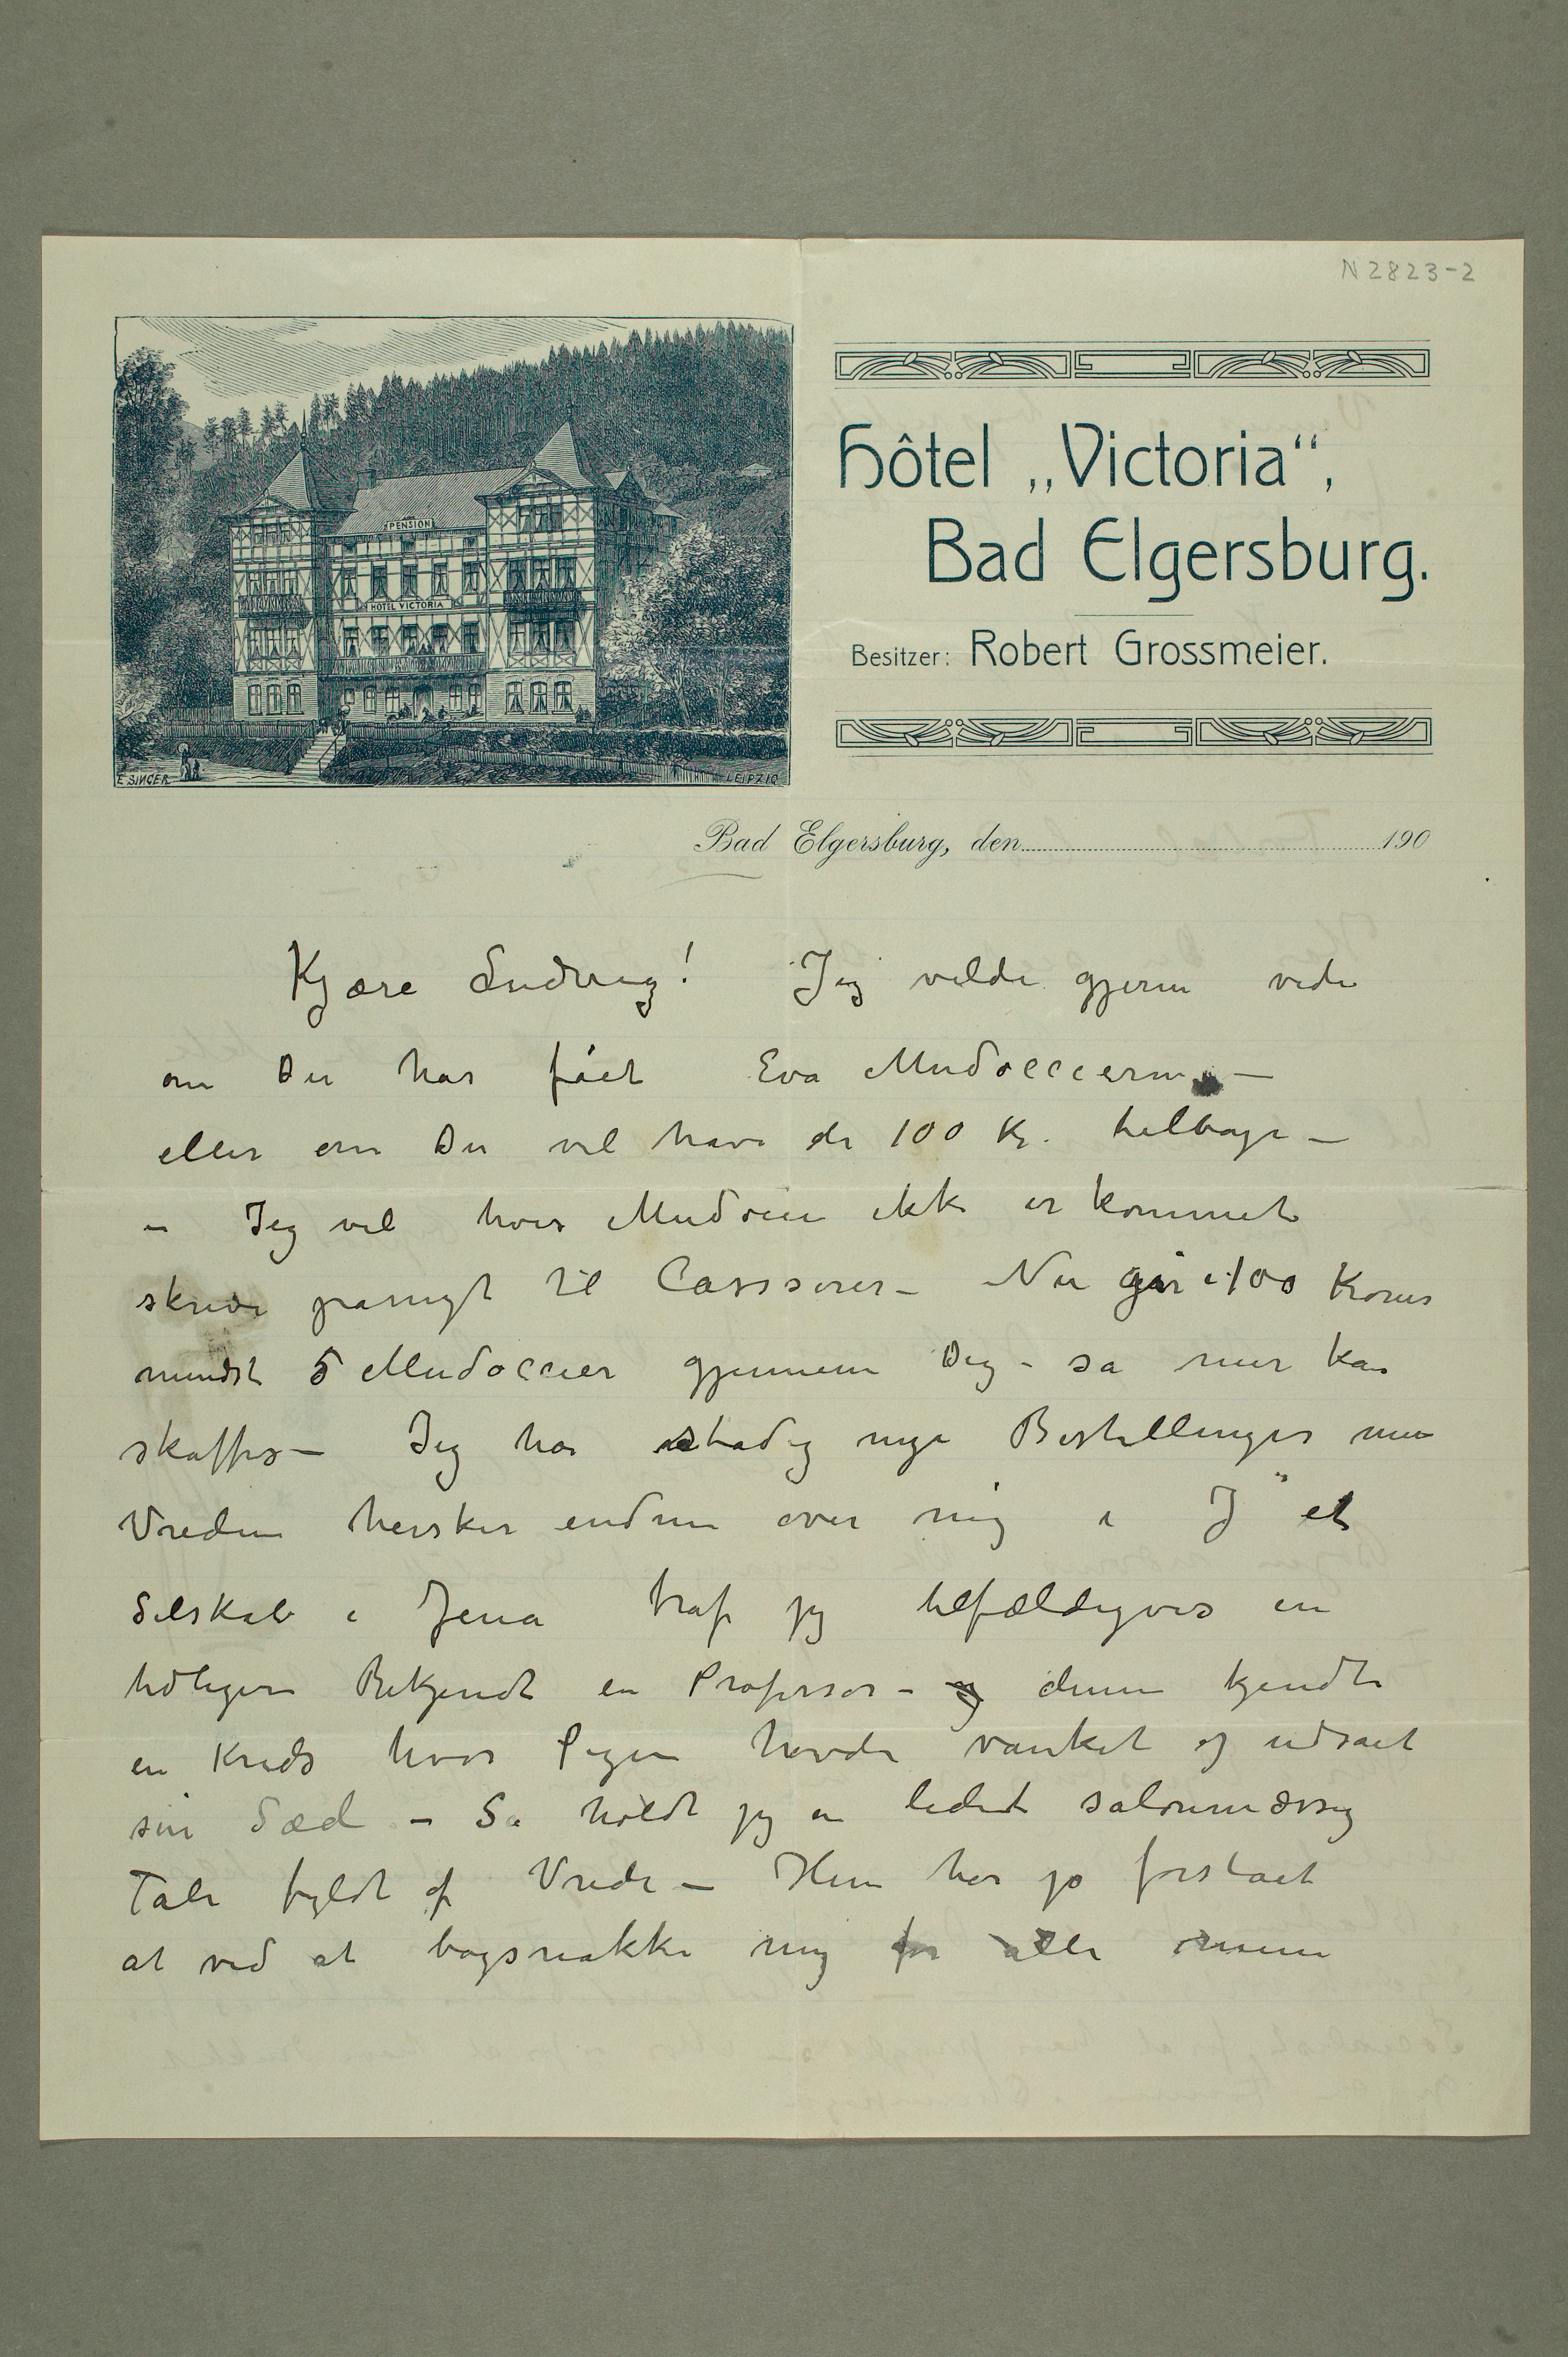 N 2823-2
PENSION
HOTEL VICTORIA
E. SINGER
LEIPZIG
Hôtel „Victoria“,
Bad Elgersburg.
Besitzer: Robert Grossmeier.
Bad Elgersburg, den 190
Kjære Ludvig! Jeg vilde gjerne vide
om Du har fået Eva Mudoccierne –
eller om Du vil have de 100 Kr. tilbage –
– Jeg vil hvis Mudocci ikke er kommet
skrive pånyt til Casssirer – Nu går i 100 Kroner
mindst 5 Mudoccier gjennem Dig – så mer kan
skaffes – Jeg har stadig nye Bestillinger men
Vreden hersker endnu over mig i J et
Selskab i Jena traf jeg tilfældigvis en
tidligere Bekjendt en Professor – denne kjendte
en Kreds hvor Pigen havde vanket og udsået
sin Sæd – Så holdt jeg en ledent salonmæssig
Tale fyldt af Vrede – Hun har jo forstået
at ved at bagsnakke mig for alle mine